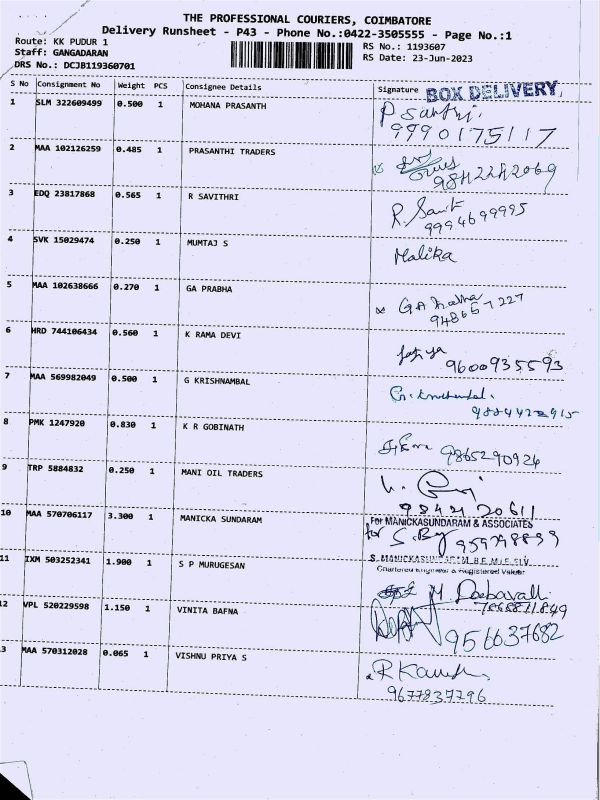 THE PROFESSIONAL COURIERS, COIMBATORE
Delivery Runsheet - P43 - Phone No.:0422-3505555 - Page No.:1
Route: KK PUDUR 1
RS No.: 1193607
Staff: GANGADARAN
RS Date: 23-Jun-2023
DRS No.: DCJB119360701
S No Consignment No Weight PCS Consignee Details Signature BOX DELIVERY
1 SLM 322609499 0.500 1 MOHANA PRASANTH P Santhi.
9990175117
2 MAA 102126259 0.485 1 PRASANTHI TRADERS
9842242069
3 EDQ 23817868 0.565 1 R SAVITHRI R. Savit
9994699995
4 SVK 15029474 0.250 1 MUMTAJ S Malika
5 MAA 102638666 0.270 1 GA PRABHA GA
948667227
6 HRD 744106434 0.560 1 K RAMA DEVI
9600935593
7 MAA 569982049 0.500 1 G KRISHNAMBAL
8 PMK 1247920 0.830 1 K R GOBINATH
9865290924
9 TRP 5884832 0.250 1 MANI OIL TRADERS
9842120611
10 MAA 570706117 3.300 1 MANICKA SUNDARAM For MANICKASUNDARAM & ASSOCIATES
for
11 IXM 503252341 1.900 1 S P MURUGESAN
Chartered Engineer & Registered Valuer
M
12 VPL 520229598 1.150 1 VINITA BAFNA
956637682
3 MAA 570312028 0.065 1 VISHNU PRIYA S
9677837796